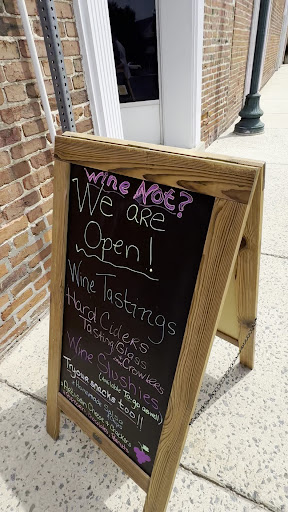 Wine Not?
We are
Open!
Wine Tastings
Hard Ciders
Tasting Glass
+ Growlers
Wine Slushies
(available To-go as well)
Try our snacks too!!
Cheese & Crackers